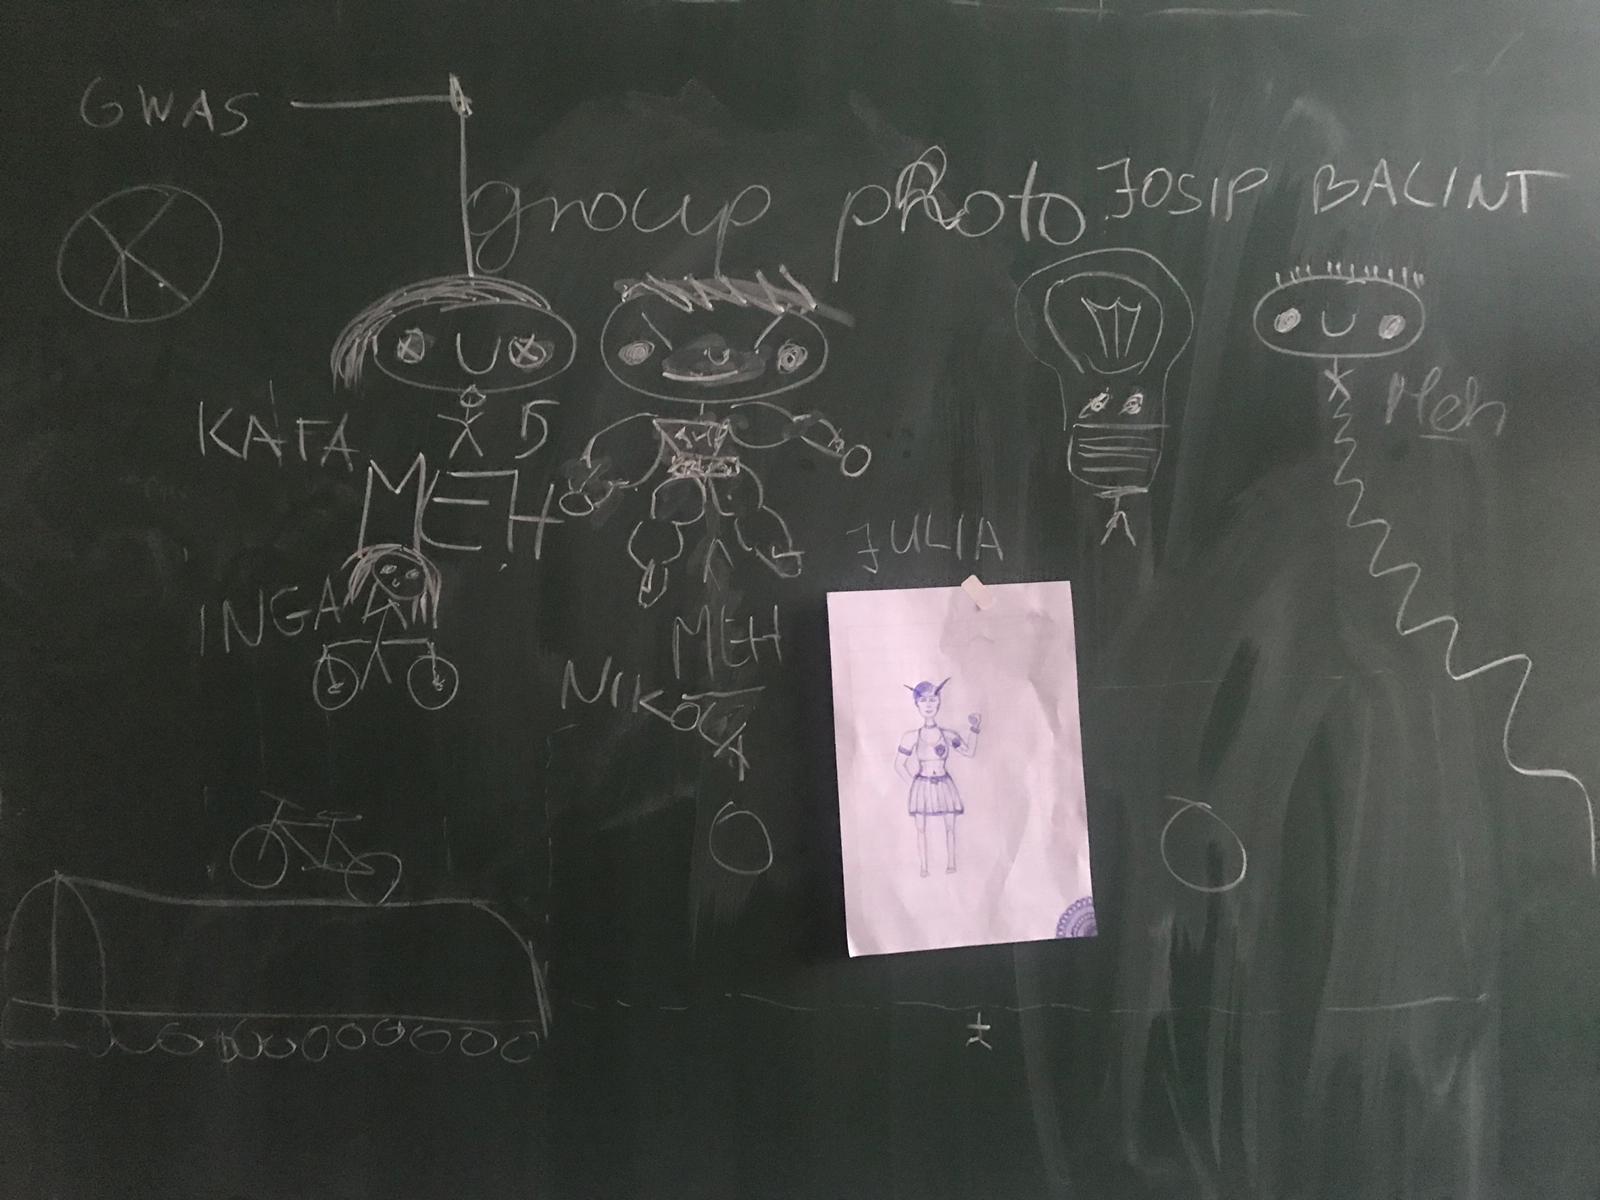 GWAS
group photo
JOSIP BALINT
KATA
5
MEH
Meh
JULIA
INGA
MEH
NIKOLA